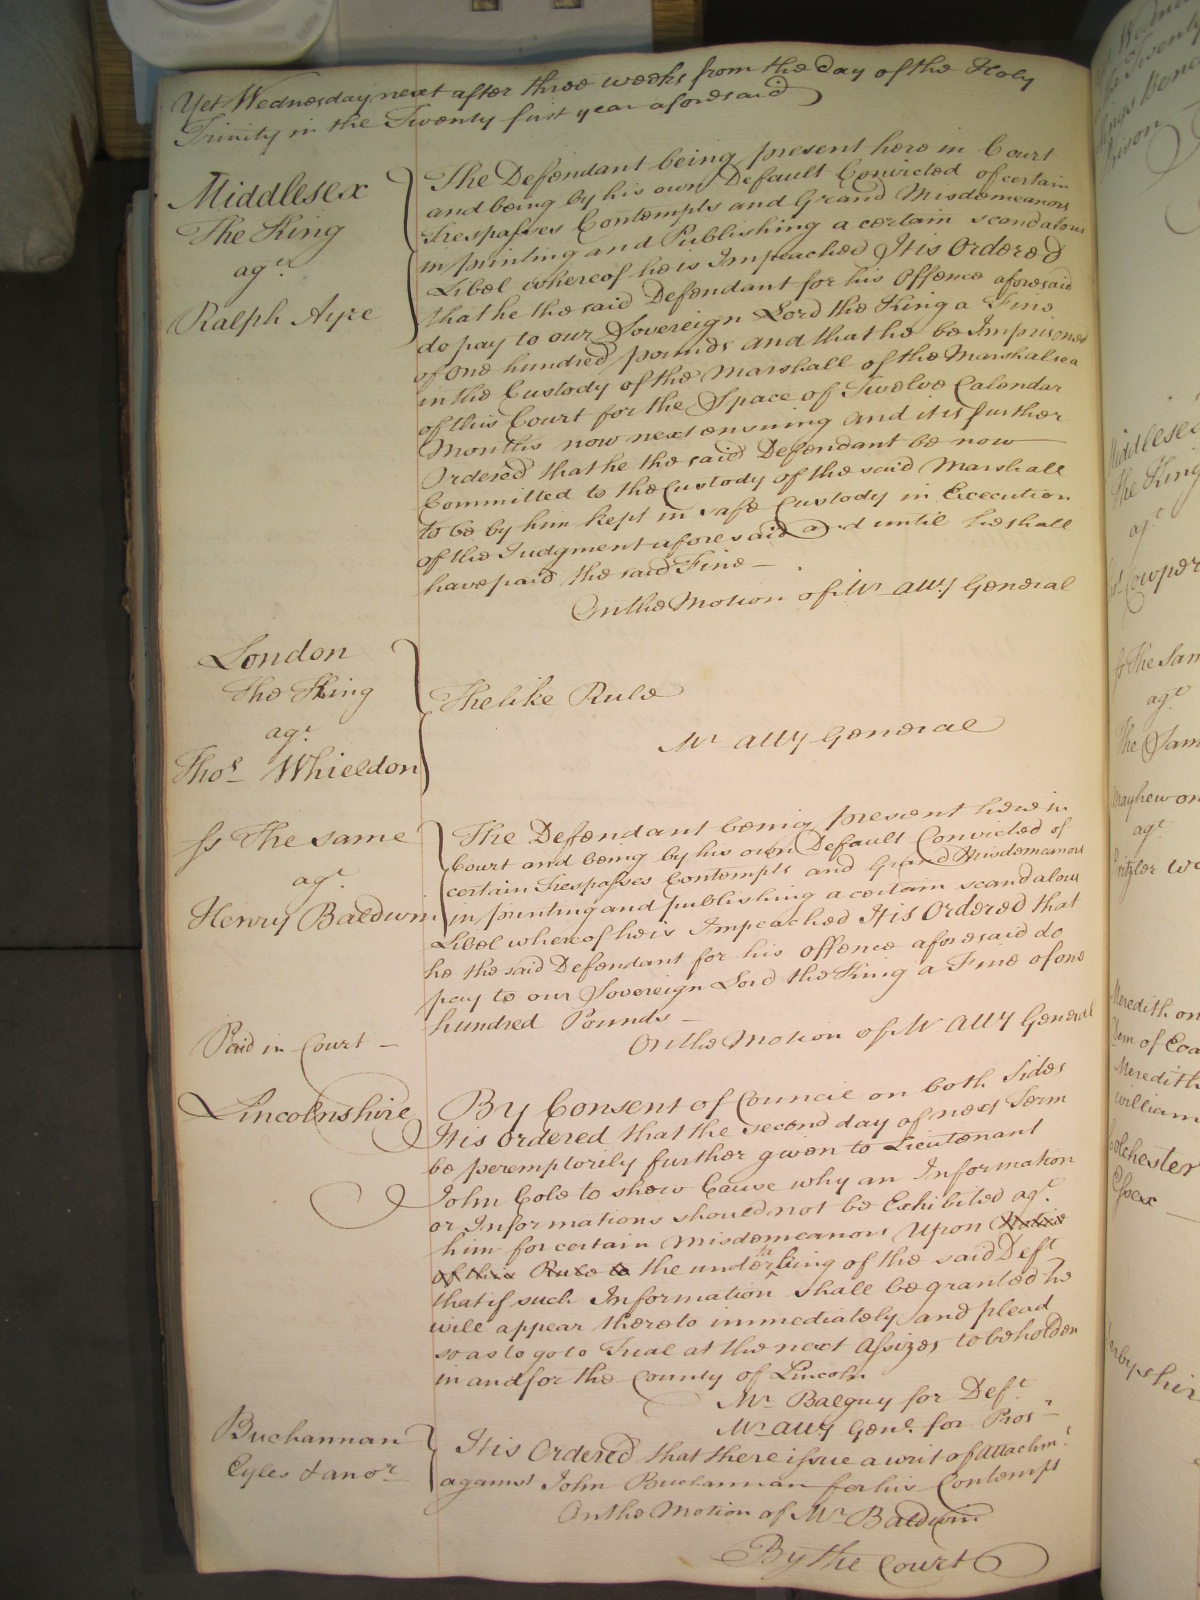 Yet Wednesday next after three weeks from the Day of the Holy
Trinity in the Twenty first year aforesaid
Middlesex
The King
agt.
Ralph Ayre
The Defendant being present here in Court
and being by his own Default Convicted of certain
Trespasses Contempts and Grand Misdemeanors
in printing and Publishing a certain scandalous
Libel whereof he is Impeached It is Ordered
that he the said Defendant for his Offence aforesaid
do pay to our Sovereign Lord the King a Fine
of one hundred pounds and that he be Imprisoned
in the Custody of the Marshall of the Marshalsea
of this Court for the Space of Twelve Calendar
Months now next ensuing and it is further
Ordered that he the said Defendant be now
Committed to the Custody of the said Marshall
to be by him kept in safe Custody in Execution
of the Judgment aforesaid and until he shall
have paid the said Fine
On the Motion of Mr. Atty General
London
The King
agt.
Thos. Whieldon
The like Rule
Mr. Atty General
Ss The same
agt.
Henry Baldwin
The Defendant being present here in
Court and being by his own Default Convicted of
certain Trespasses Contempts and Grand Misdemeanors
in printing and publishing a certain scandalous
Libel whereof he is Impeached It is Ordered that
he the said Defendant for his offence aforesaid do
pay to our Sovereign Lord the King a Fine of one
hundred Pounds
On the Motion of Mr Atty General
Paid in Court
Lincolnshire
By Consent of Council on both Sides
It is ordered that the second day of next Term
be peremptorily further given to Lieutenant
John Cole to shew Cause why an Information
or Informations should not be Exhibited agt.
him for certain Misdemeanors Upon Notice
of this Rule to the undertaking of the said Deft.
that if such Information shall be granted he
will appear thereto immediately and plead
so as to go to Trial at the next Assizes to be holden
in and for the County of Lincoln
Mr. Balguy for Deft.
Mr. Atty Genl. for Pros
Buchannan
Eyles & anor.
It is Ordered that there issue a writ of Attachmt.
against John Buchannan for his Contempt
On the Motion of Mr. Baldwin
By the Court
Middlesex
The King
agt.
Cowper
agt.
Mayhew on
agt.
Meredith on
Meredith
William
Colchester
Essex